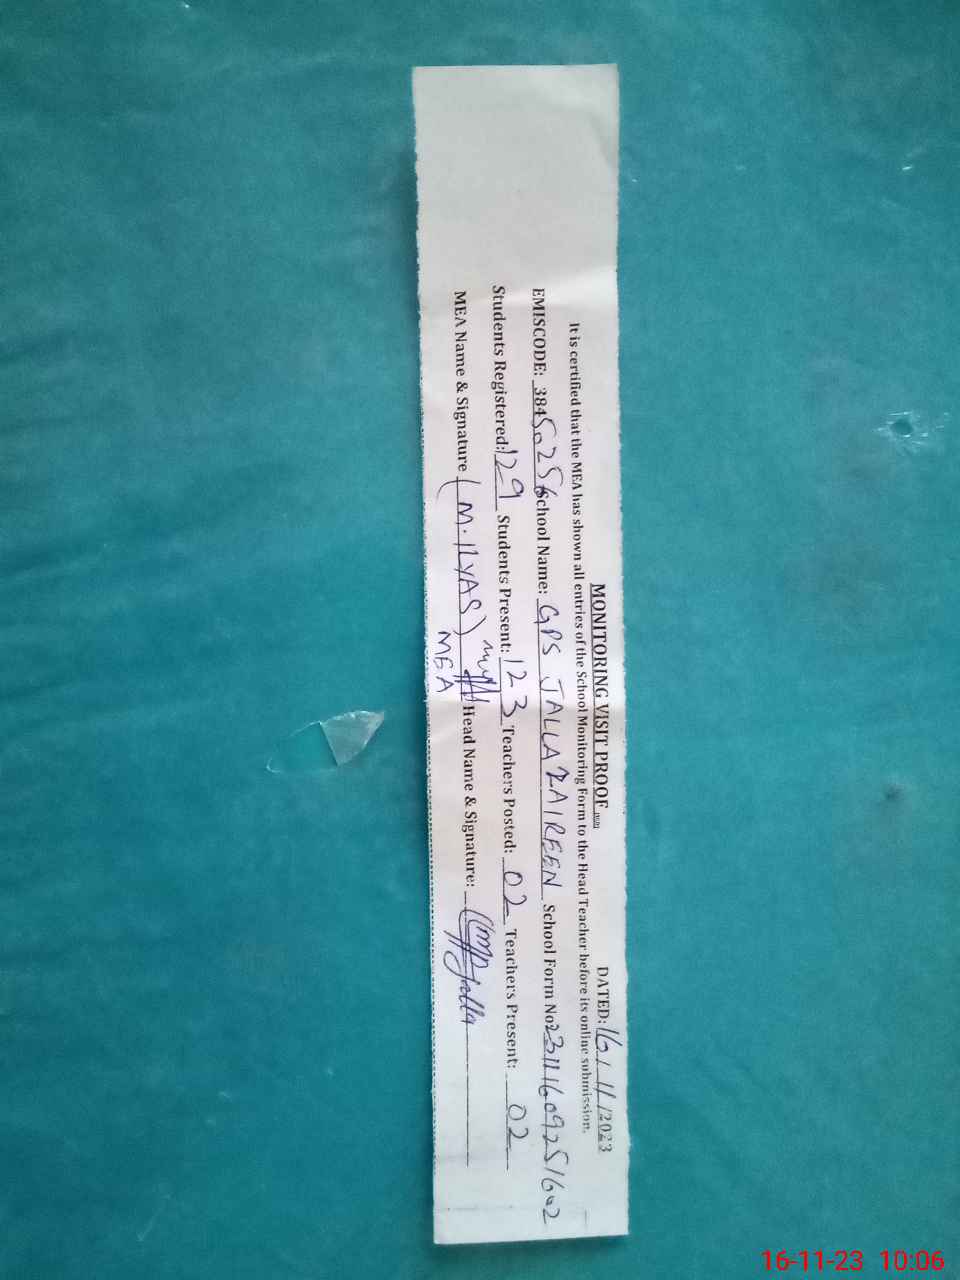 MONITORING VISIT PROOF DATED: 16/11/2023
It is certified that the MEA has shown all entries of the School Monitoring Form to the Head Teacher before its online submission.
EMISCODE: 38450256 School Name: GPS JALLA ZAIREEN School Form No 23111609251602
Students Registered: 129 Students Present: 123 Teachers Posted: 02 Teachers Present: 02
MEA Name & Signature (M.ILYAS) Head Name & Signature:
MEA
16-11-23 10:06